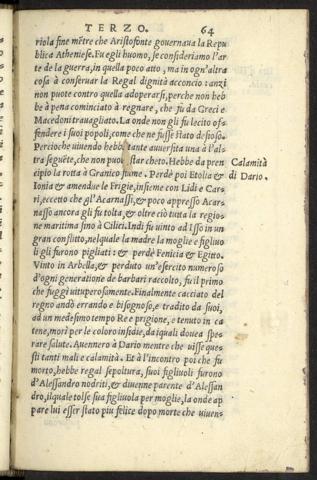 TERZO. 64
riola fine mētre che Aristofonte gouernaua la Repu
blica Atheniese. Fu egli huomo, se consideriamo l'ar
te de la guerra, in quella poco atto, ma in ogn'altra
cosa à conseruar la Regal dignità acconcio: anzi
non puote contro quella adoperarsi, perche non heb
be à pena cominciato à regnare, che fù da Greci e
Macedoni trauagliato. La onde non gli fu lecito of-
fendere i suoi popoli, come che ne fusse stato desioso.
Percioche uiuendo hebbe tante auuersita una à l'al-
tra seguēte, che non puoe star cheto. Hebbe da pren
cipio la rotta à Granico fiume. Perdè poi Etolia &
Ionia & amendue le Frigie, insieme con Lidi e Car-
ri, eccetto che gl'Acarnassi, & poco appresso Acar-
nasso ancora gli fu tolta, & oltre ciò tuta la regio-
ne maritima fino à Cilici. Indi fu uinto ad Isso in un
gran conflitto, nel quale la madre la moglie e figliuo
li gli furono pigliati: & perdè Fenicia & Egitto.
Vinto in Arbella, & perduto un'esercito numeroso
d'ogni generatione de barbari raccolto, fu il primo
che fuggì uituperosamente. Finalmente cacciato del
regno andò errando e bisognoso, e tradito da suoi,
ad un medesimo tempo Re e prigione, e tenuto in ca
tene, morì per le coloro insidie, da iquali doueа spe-
rare salute. Auennero à Dario mentre che uisse que-
sti tanti mali e calamità. Et à l'incontro poi che fu
morto, hebbe regal sepoltura, suoi figliuoli furono
d'Alessandro nodriti, & diuenne parente d'Alessan-
dro, ilquale tolse sua figliuola per moglie, la onde ap
pare lui esser stato piu felice dopo morte che uiuen-
Calamità
di Dario.